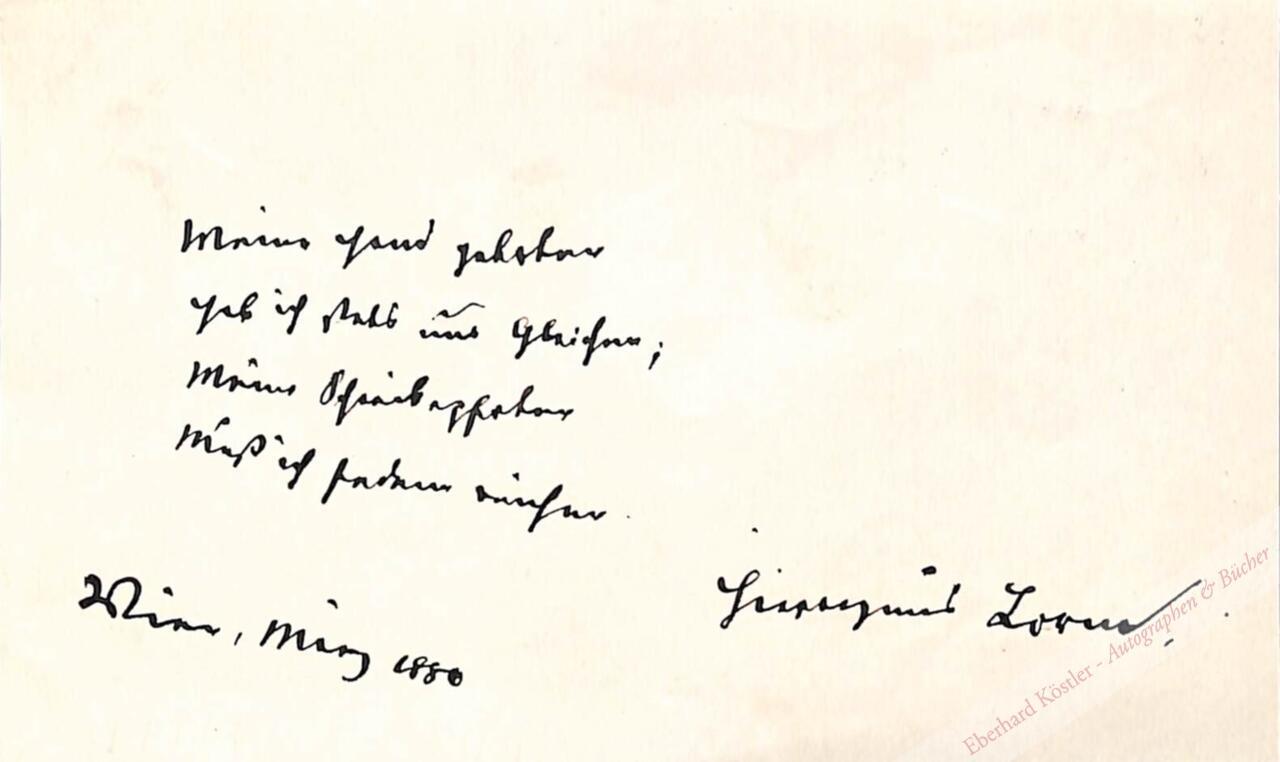 Meine Hand geboten
Hab' ich stets nur Gleichen;
Meine Scheidepfoten
Muß ich jedem reichen.
Wien, März 1880
Hieronymus Lorm
Eberhard Köstler - Autographen & Bücher